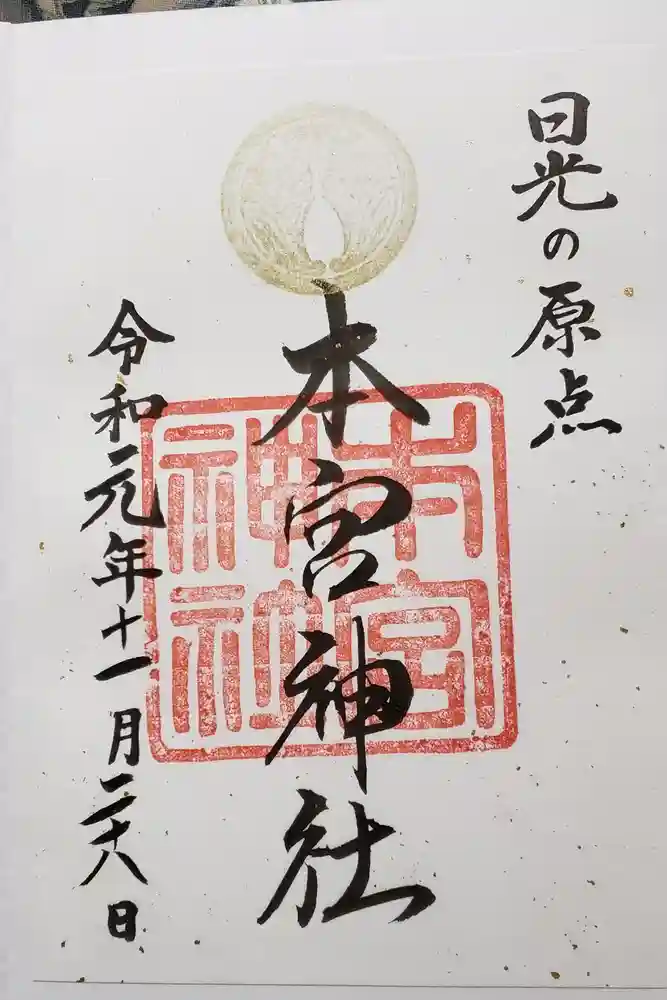 日光の原点
本宮神社
本宮神社
令和元年十一月二十八日